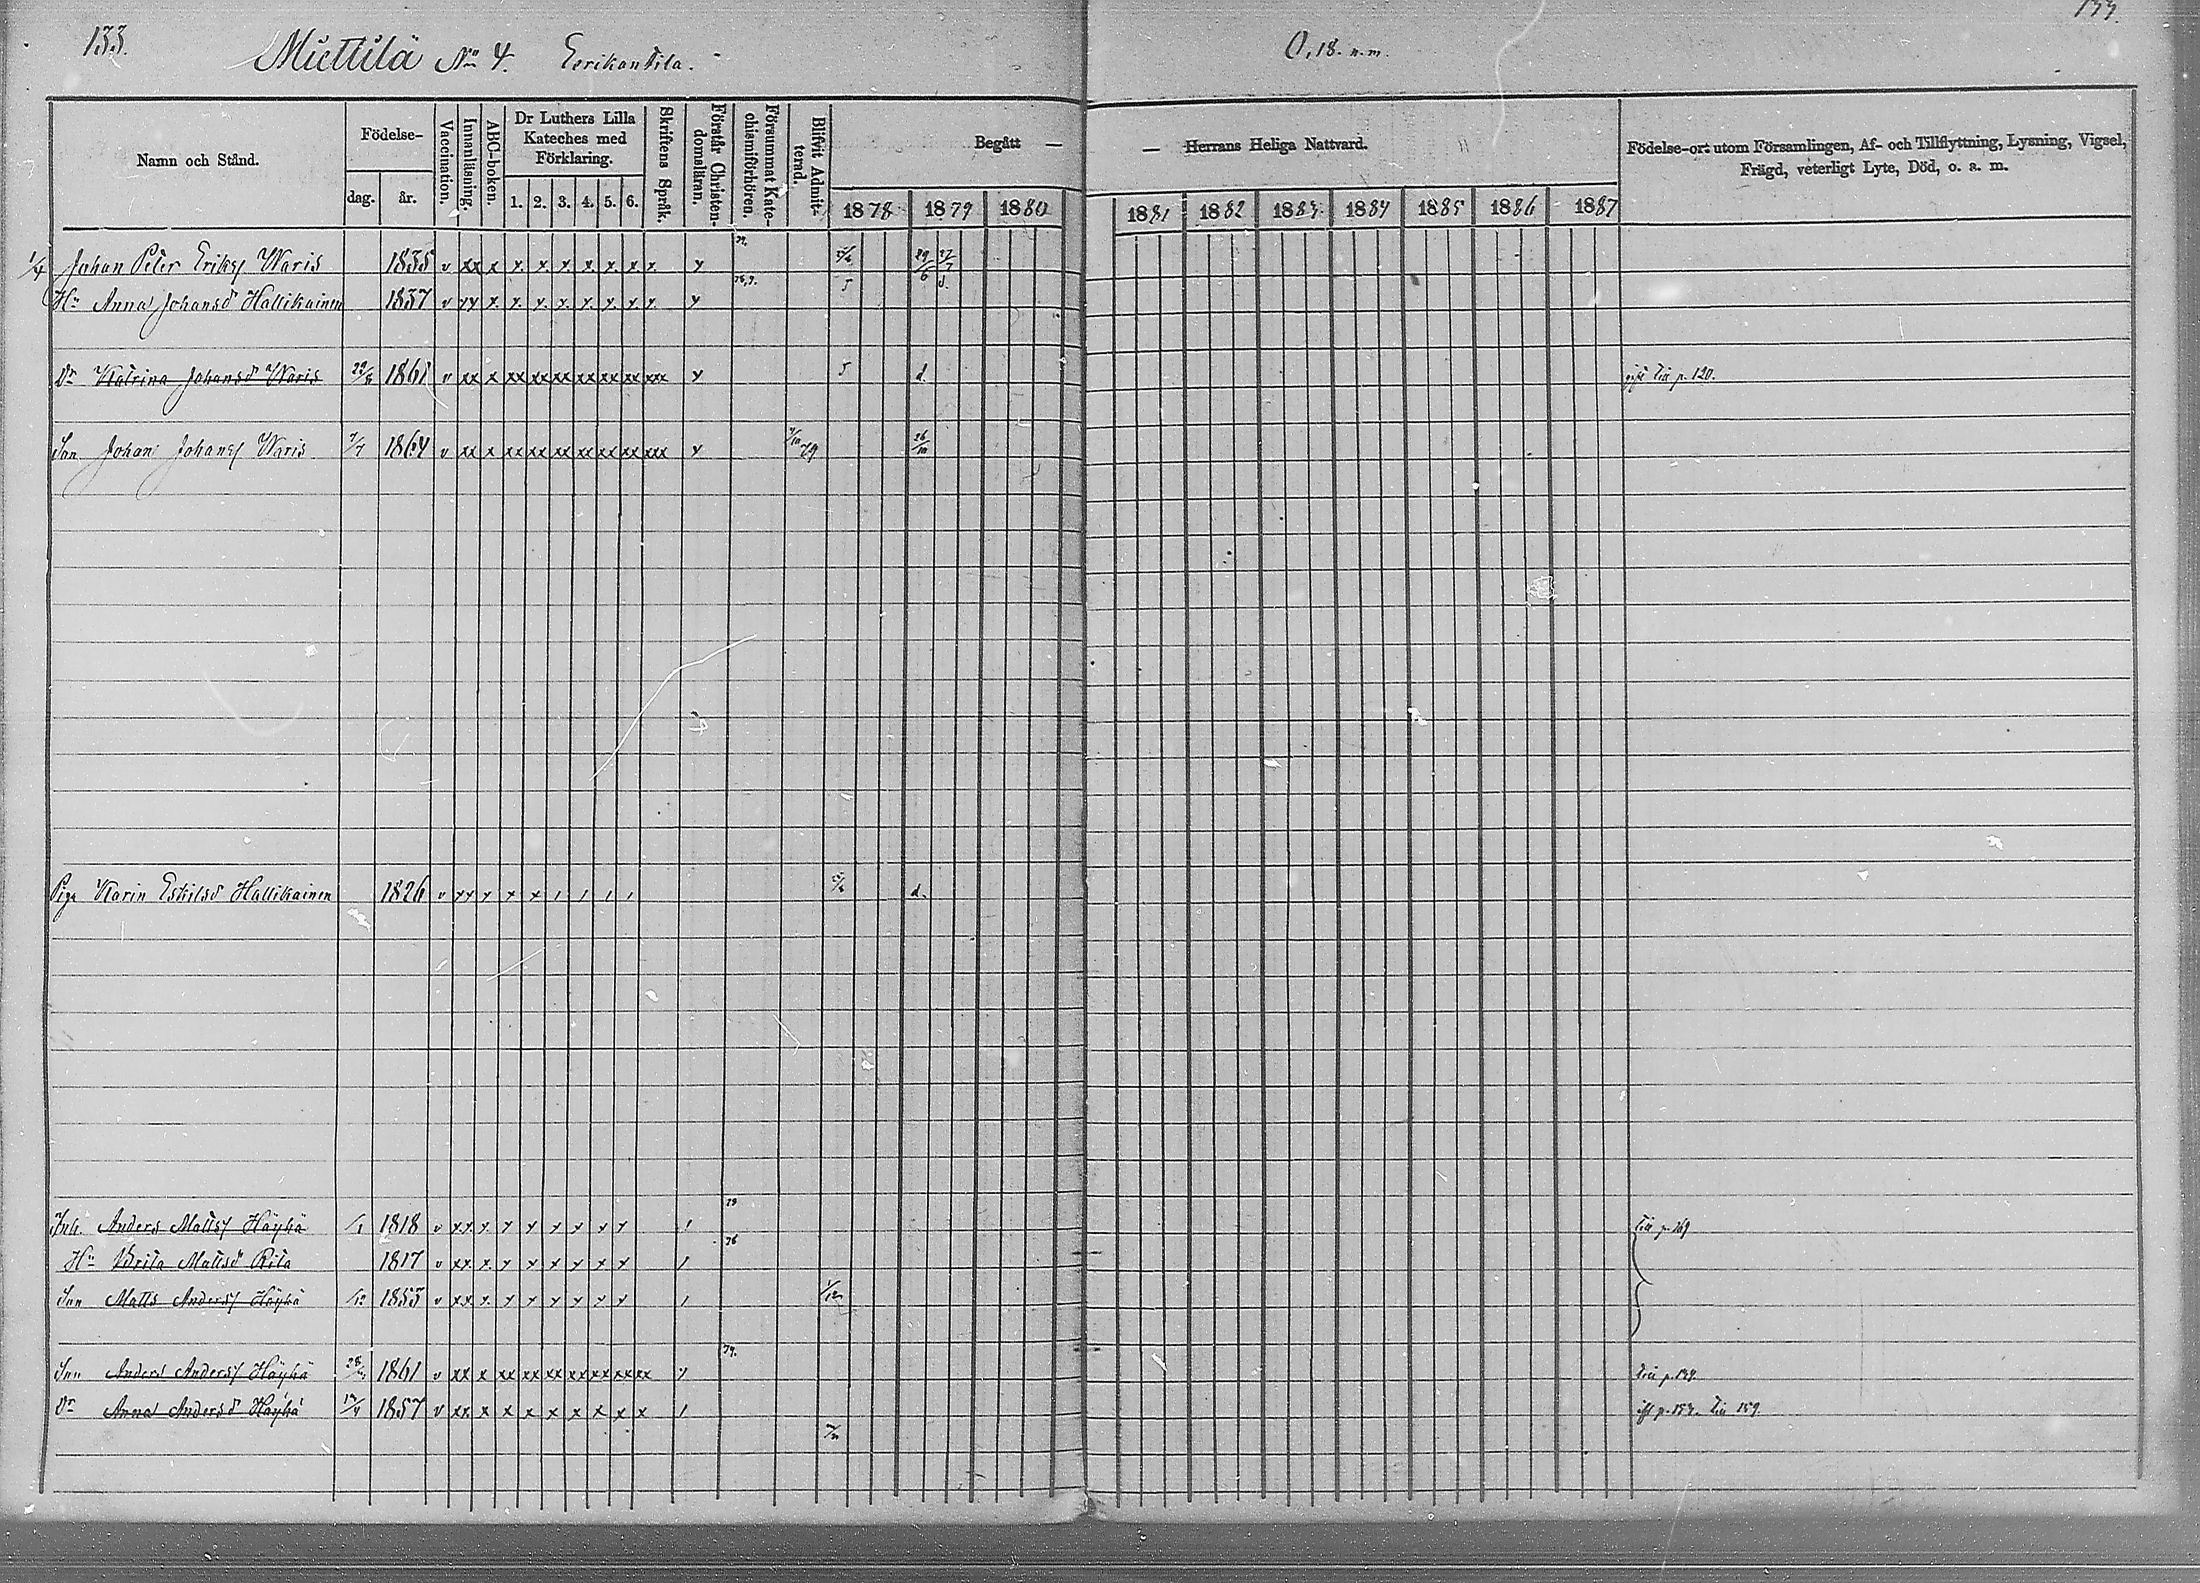 133. 133.
Miettilä No 4. Eerikantila. 0,18 n.m.
Namn och Stånd.
Födelse-
dag. år.
Vaccination.
Innanläsning.
ABC-boken.
Dr Luthers Lilla
Kateches med
Förklaring.
1. 2. 3. 4. 5. 6.
Skriftens Språk.
Förstår Christen-
domsläran.
Försummat Kate-
chismiförhören.
Blifvit Admit-
terad.
Begått — — Herrans Heliga Nattvard.
1878 1879 1880 1881 1882 1883 1884 1885 1886 1887
Födelse-ort utom Församlingen, Af- och Tillflyttning, Lysning, Vigsel,
Frägd, veterligt Lyte, Död, o. a. m.
1/4 Johan Peter Eriksf Waris 1835 v xx x x. x. x. x. x. x x. x 29/6 27/7
Hu Anna Johansd Hallikainen 1837 v xx x. x. x. x. x. x. x x. x 5 d.
Dr Katrina Johansd Waris 1861 v xx x xx xx xx xx xx xx xxx x 5 d. gift till p. 120.
Son Johan Johansf Waris 7/7 1864 v xx x xx xx xx xx xx xx xxx x 79 26/10
Piga Karin Eskilsd Hallikainen 1826 v xx x x x / / / / d.
Inh. Anders Mattsf Häyhä 1818 v xx x. x x x x x x / till p. 269
Hu Brita Mattsd Rita 1817 v xx x. x x x x x x / 76
Son Matts Andersf Häyhä /12 1853 v xx x. x x x x x x / 1/12
Son Anders Andersf Häyhä 1861 v xx x xx xx xx xx xx xx xx x 79. till p.
Dr Anna Andersd Häyhä 1857 v xx x x x x x x x x / p. 153. till 159.